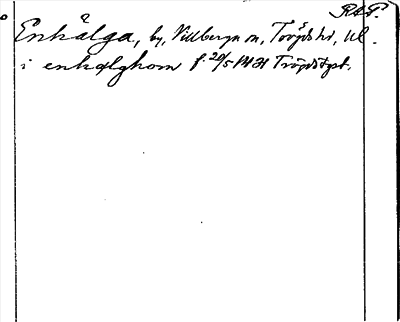 RAP.
Enhälga, by, Villberga sn, Trögds hd, Ul.
i enhælghom f. 20/5 1431 Trögdstpst.